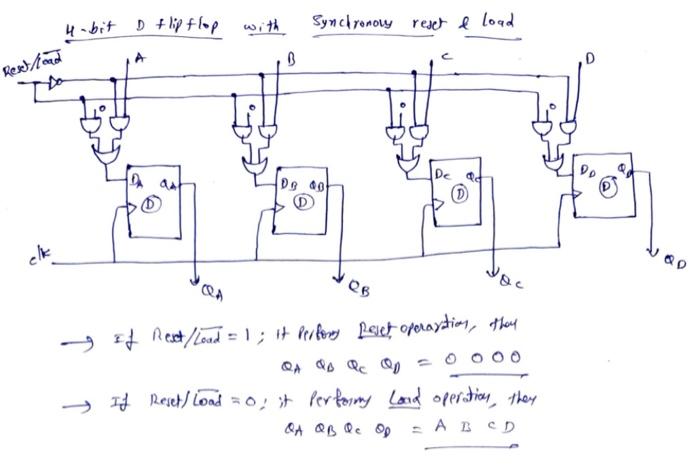 4-bit D flipflop with Synchronous reset & Load
Reset/Load
A
B
C
D
0
0
0
0
DA QA
D
DB QB
D
DC QC
D
DD QD
D
clk
QA
QB
QC
QD
→ If Reset/Load = 1; it Performs Reset operation, then
QA QB QC QD = 0 0 0 0
→ If Reset/Load = 0; it Performs Load operation, then
QA QB QC QD = A B C D